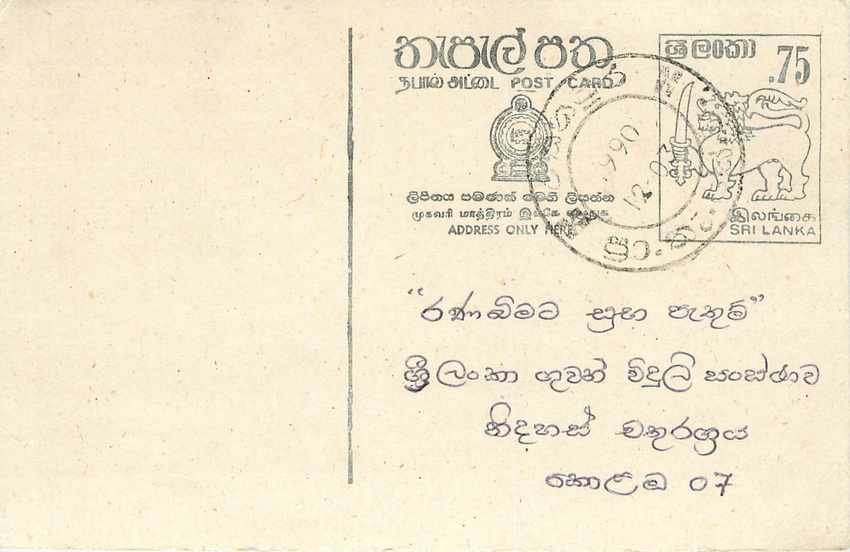 තැපැල් පත
தபால் அட்டை POST CARD
ශ්‍රී ලංකා
.75
ලිපිනය පමණක් මෙහි ලියන්න
முகவரி மாத்திரம் இங்கே
ADDRESS ONLY HERE
இலங்கை
SRI LANKA
1990
12 03
"රණබිමට සුභ පැතුම්"
ශ්‍රී ලංකා ගුවන් විදුලි සංස්ථාව
නිදහස් චතුරශ්‍රය
කොළඹ 07